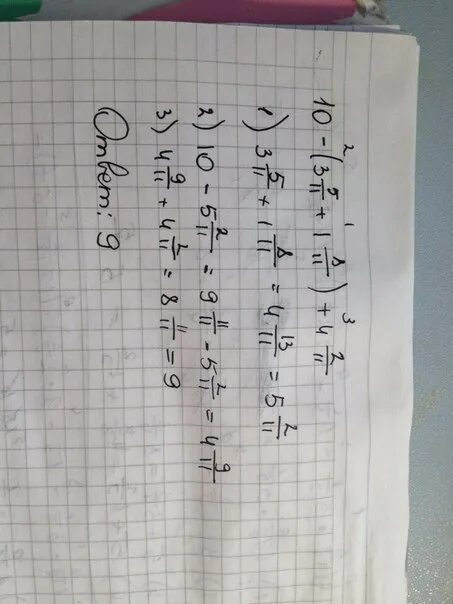 10 - (3 5/11 + 1 8/11) + 4 2/11
2 1 3
1) 3 5/11 + 1 8/11 = 4 13/11 = 5 2/11
2) 10 - 5 2/11 = 9 11/11 - 5 2/11 = 4 9/11
3) 4 9/11 + 4 2/11 = 8 11/11 = 9
Ответ: 9